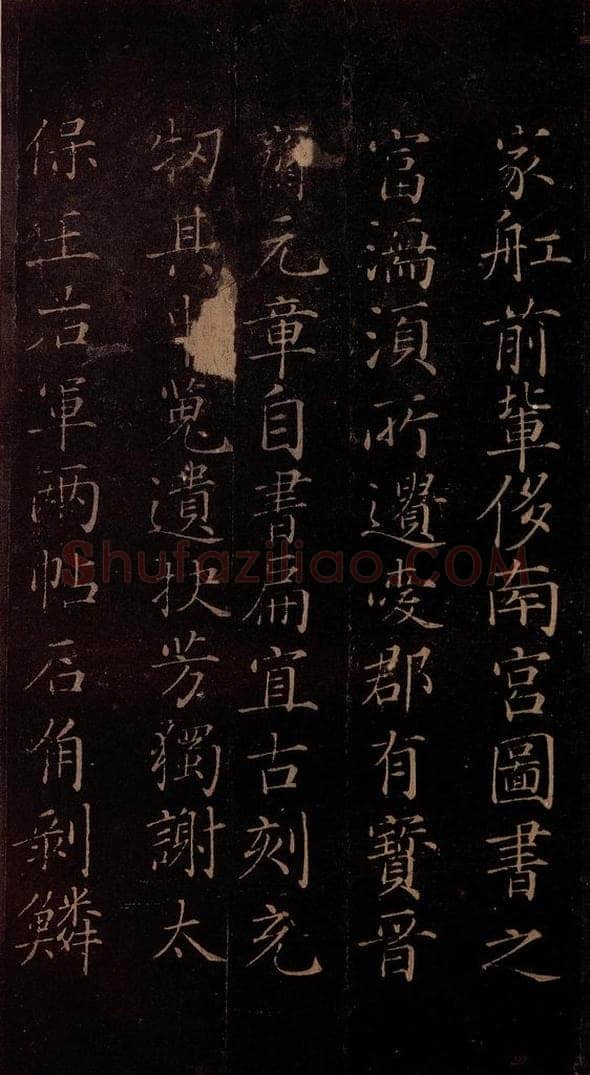 家舡前輩侈南宮圖書之
富濡須所郡有寶晉
齋元章自書扁宜古刻充
牣其中蒐遺抉芳獨謝太
保王右軍兩帖后角剝鱗
Shufaziliao.COM